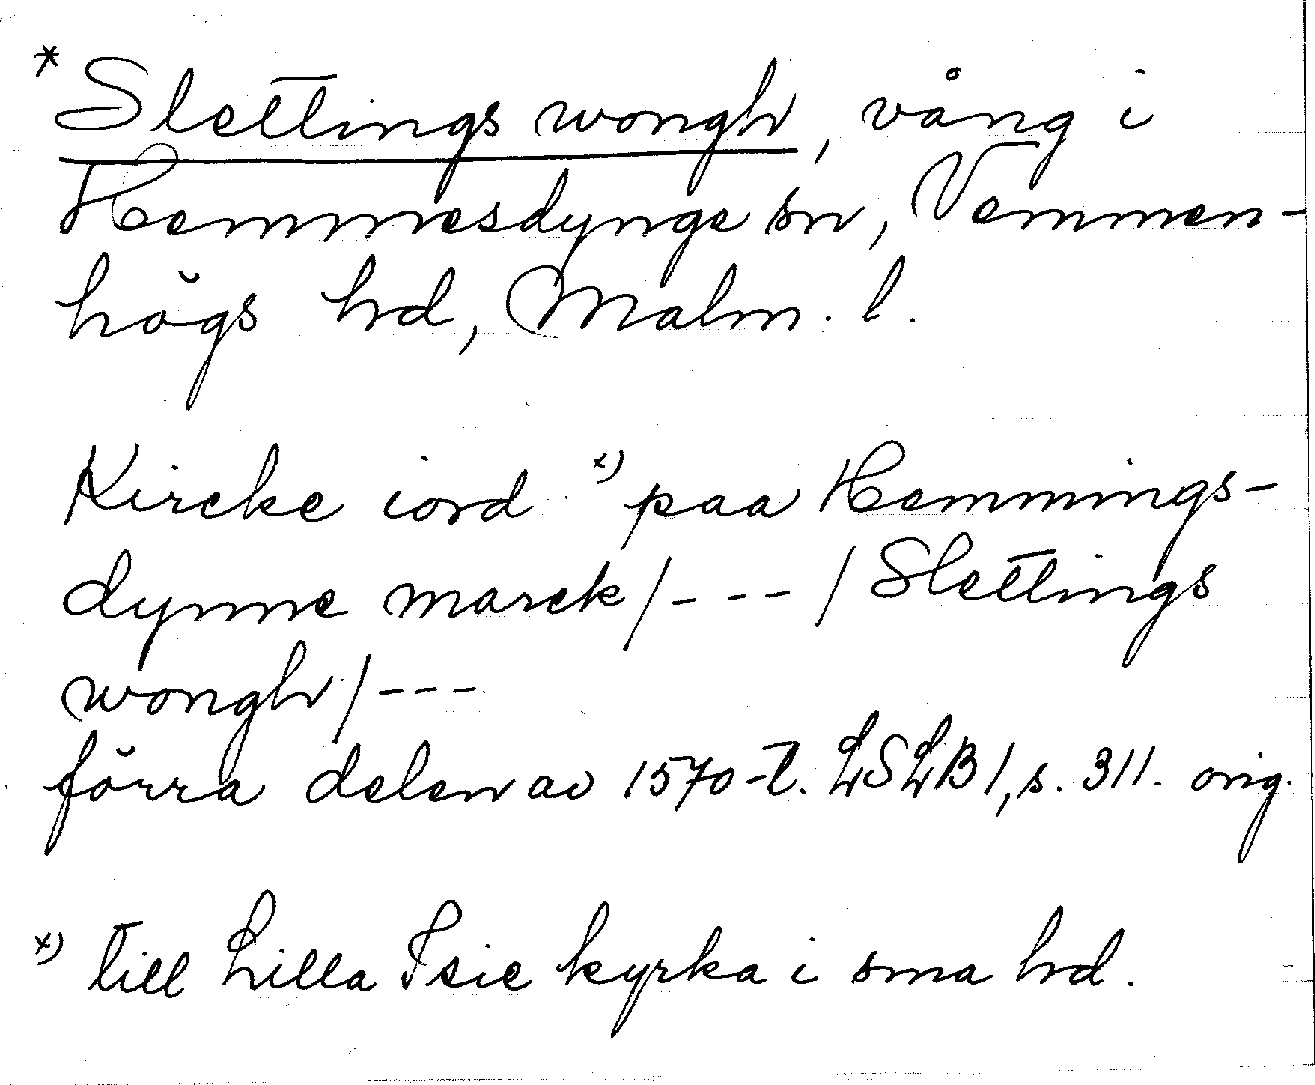 * Slettings wongh, vång i
Hemmesdynge sn, Vemmen-
högs hd, Malm. l.
Kircke iord x) paa Hemmings-
dynne marck/---/Slettings
wongh/---
förra delen av 1570-t. LSLB1, s. 311. orig.
x) till Lilla Isie kyrka i sma hd.